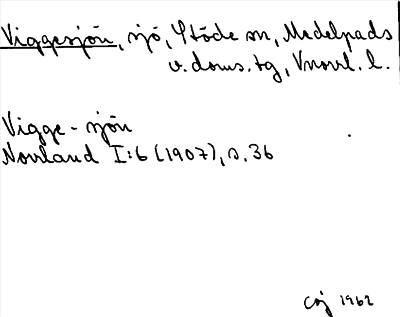 Viggesjön, sjö, Stöde sn, Medelpads
v. doms. tg, Vnorrl. l.
Vigge-sjön
Norrland I:6 (1907), s. 36
CGJ 1962